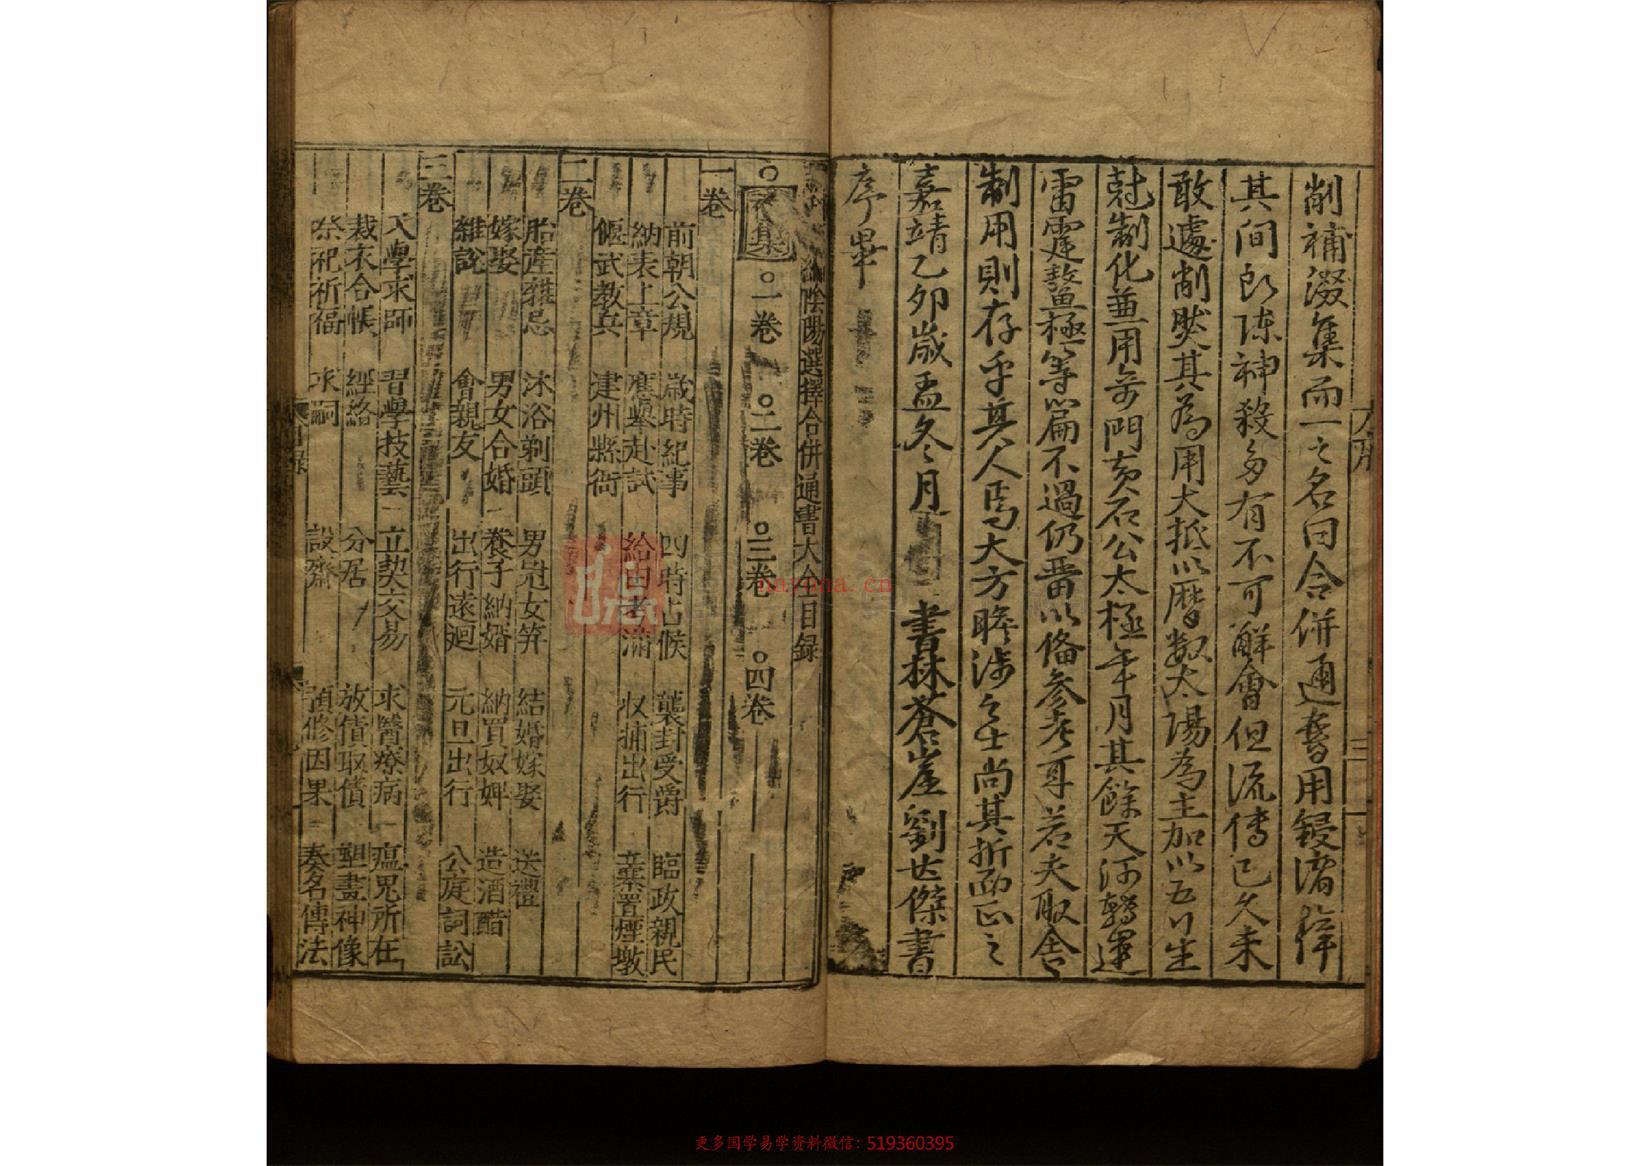 削補湊集而一之名曰合併通書用鋟
其間所陳神殺多有不可解會但流傳已久未
敢遽削然其為用大抵以曆數太陽為主加以五行生
尅制化兼用奇門黃石公太極年月其餘天河轉運
雷霆鰲極等篇不過仍舊以備參考耳若夫取舍
制用則存乎其人焉大方瞻涉之士尚其折而正之
嘉靖乙卯歲孟冬月
書林蒼崖劉世傑書
序畢
陰陽選擇合併通書大全目錄
集 ○一卷 ○二卷 ○三卷 ○四卷
一卷
前朝公規 歲時紀事 四時占候 襲封受爵 臨政親民
納表上章 應舉赴試 給由考滿 收捕出行 葺署煙墩
偃武教兵 建州縣衙
二卷
胎產雜忌 沐浴剃頭 男冠女笄 結婚嫁娶 送禮
嫁娶 男女合婚 養子納婿 納買奴婢 造酒醋
雜說 會親友 出行遠迴 元旦出行 公庭詞訟
三卷
入學求師 習學技藝 立契交易 求醫療病 瘟鬼所在
裁衣合帳 經絡 分居 放債取債 塑畫神像
祭祀祈福 求嗣 設齋 預修因果 奏名傳法
nayona.cn
更多国学易学资料微信：519360395